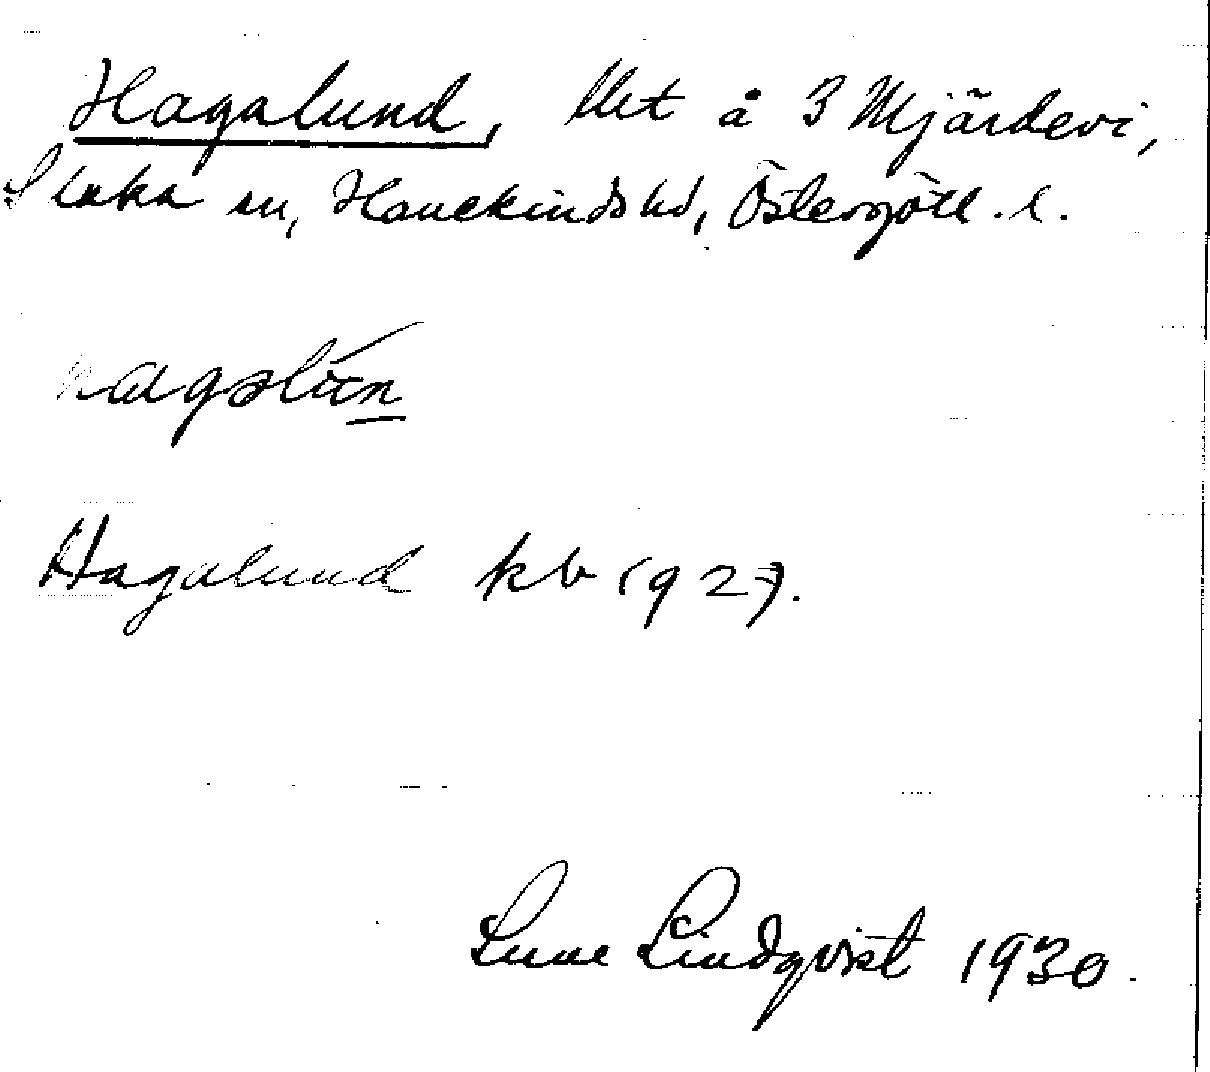 Hagalund, lht å 3 Mjärdevi,
Slaka sn, Hanekinds hd, Östergötl. l.
hagəlun
Hagalund kb 1927.
Sune Lindqvist 1930.